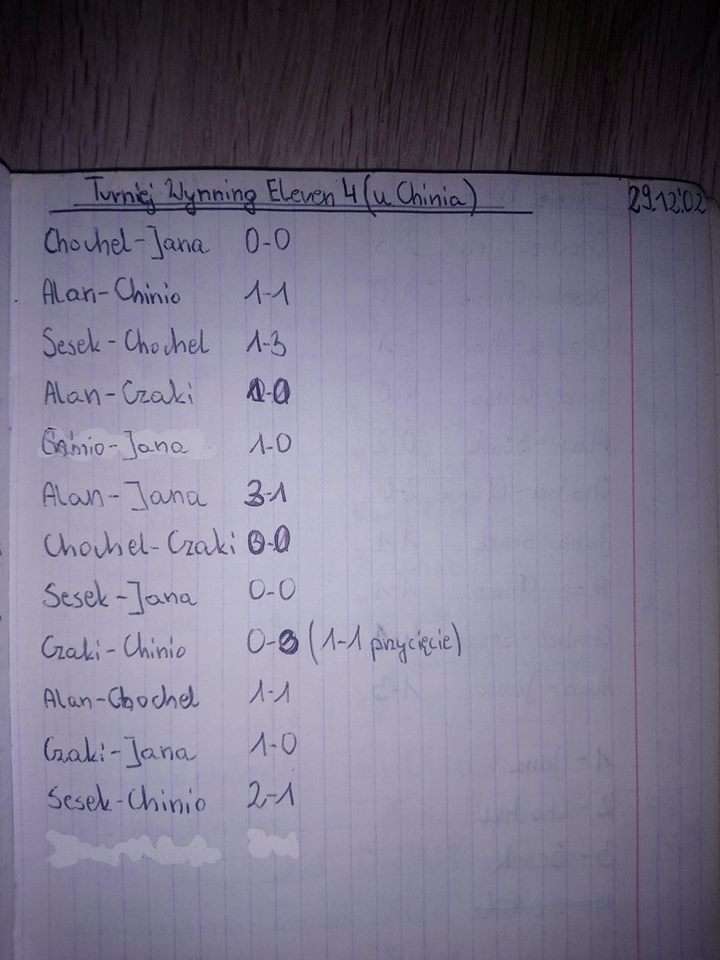 Turniej Wynning Eleven 4 (u Chinia) 29.12.02
Chochel-Jana 0-0
Alan-Chinio 1-1
Sesek-Chochel 1-3
Alan-Czaki 1-0
Chinio-Jana 1-0
Alan-Jana 3-1
Chochel-Czaki 0-0
Sesek-Jana 0-0
Czaki-Chinio 0-3 (1-1 przycięcie)
Alan-Chochel 1-1
Czaki-Jana 1-0
Sesek-Chinio 2-1